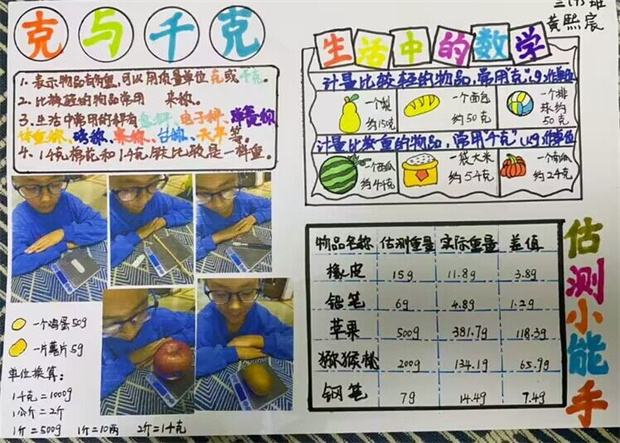 克与千克
1.表示物品有多重，可以用质量单位克或千克。
2.比较轻的物品常用 来称。
3.生活中常用的秤有盘秤、电子秤、弹簧秤
体重秤、磅秤、案称、台秤、天平等。
4.1千克棉花和1千克铁比较是一样重。
一个鸡蛋50g
一片薯片5g
单位换算：
1千克=1000g
1公斤=2斤
1斤=500g 1斤=10两 2斤=1千克
三(5)班
黄熙宸
生活中的数学
计量比较轻的物品，常用“克”(g)作单位
一个梨
约150克
一个面包
约50克
一个排
球约
50克
计量比较重的物品，常用“千克”(kg)作单位
一个西瓜
约4千克
一袋大米
约5千克
一个南瓜
约2千克
物品名称 估测重量 实际重量 差值
橡皮 15g 11.8g 3.8g
铅笔 6g 4.8g 1.2g
苹果 500g 381.7g 118.3g
猕猴桃 200g 134.1g 65.9g
钢笔 7g 14.4g 7.4g
估测小能手